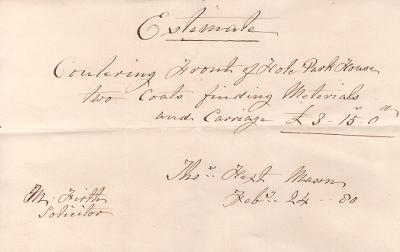 Estimate
Coulering Front of Hole Park House
two Coats finding Materials
and Carriage £3-15"0"
Thos. Hext Mason
Feby. 24 - 80
Mr. Firth
Solicitor